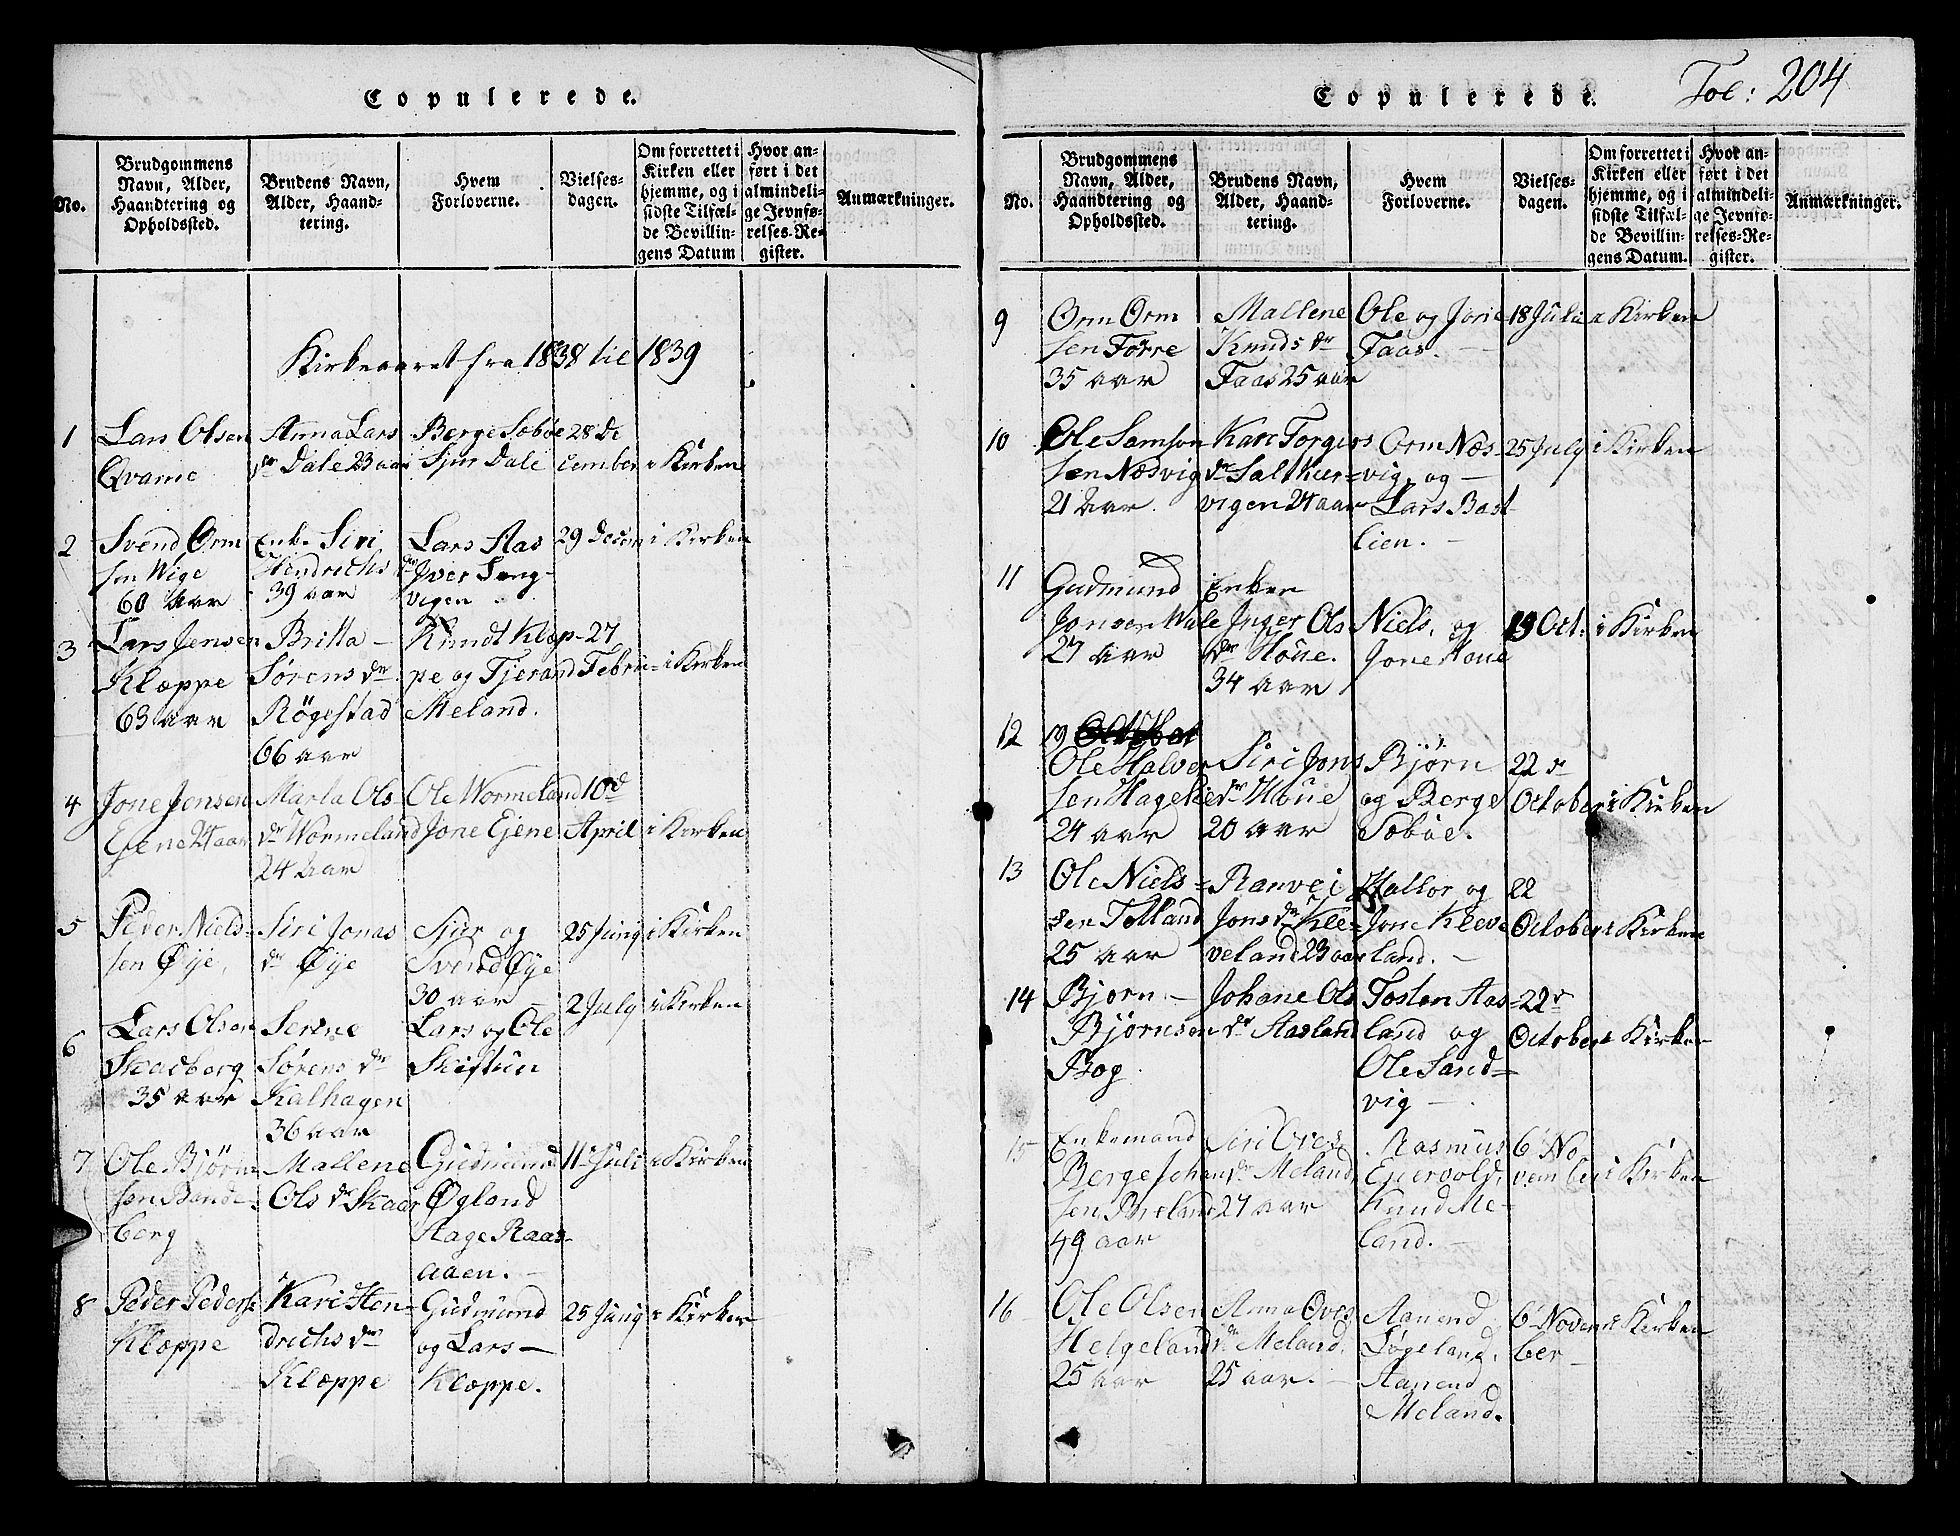 Copulerede.
No.
Brudgommens
Navn, Alder,
Haandtering og
Opholdssted.
Brudens Navn,
Alder, Haand-
tering.
Hvem
Forloverne.
Vielses-
dagen.
Om forrettet i
Kirken eller
hjemme, og i
sidste Tilfæl-
de Bevillin-
gens Datum
Hvor an-
ført i det
almindeli-
ge Jevnfø-
relses-Re-
gister.
Anmærkninger.
Kirkeaaret fra 1838 til 1839
1
Lars Olsen
Qvame
Anna Lars
dr Dale 23 aar
Berge Sæbøe
Sjur Dale
28 De
cember
i Kirken
2
Svend Orm
sen Wige
60 Aar
Enk. Siri
Hendrichs dr
39 aar
Lars Aas
Iver Sang-
vigen
29 Decem
i Kirken
3
Lars Jensen
Klæppe
63 aar
Britta -
Sørens dr
Røgestad
66 aar
Knudt Klæp-
pe og Tjerand
Meland.
27
Febru-
i Kirken
4
Jone Jensen
Ejene 24 aar
Marta Ols
dr Wormeland
24 Aar
Ole Wormeland
Jone Ejene
10d
April
i Kirken
5
Peder Niels-
sen Øije,
Siri Jonas
dr Øije
Sjur og
Svend Øije
30 aar
25 Juny
i Kirken
6
Lars Olsen
Skadberg
35 aar
Serine
Sørens dr
Kalhagen
36 aar
Lars og Ole
Skiftun
2 July
i Kirken
7
Ole Bjørn
sen Bande-
berg
Mallene
Ols dr Skaar
Gudmund
Øgland
Aage Raas-
aaen. -
11 Juli
i Kirken
8
Peder Peders:
Klæppe
Kari Hen-
drichs dr
Klæppe
Gudmund
og Lars -
Klæppe.
25 Juny
i Kirken
Copulerede.
Fol: 204
No.
Brudgommens
Navn, Alder,
Haandtering og
Opholdssted.
Brudens Navn,
Alder, Haand-
tering.
Hvem
Forloverne.
Vielses-
dagen.
Om forrettet i
Kirken eller
hjemme, og i
sidste Tilfæl-
de Bevillin-
gens Datum.
Hvor an-
ført i det
almindeli-
ge Jevnfø-
relses-Re-
gister.
Anmærkninger.
9
Orm Orm
sen Førre
35 aar
Mallene
Knuds dr
Faas 25 aar
Ole og Jone
Faas. -
18 Juli
i Kirken
10
Ole Samson
sen Næsvig
21 Aar.
Kari Torgers
dr Salthær-
vigen 24 aar
Orm Næs-
vig, og -
Lars Bast
lien. -
25 July
i Kirken
11
Gudmund
Jonsen
27 Aar
Enken
Inger Ols
dr Høue.
34 aar
Niels, og
Jone Høue
19 Oct.
i Kirken
12
Ole Halver
sen Hagelie
24 aar
Siri Jons
dr Høue
20 aar
Bjørn
og Berge
Sæbøe.
22 d
October
i Kirken
13
Ole Niels-
sen Tølland
25 aar
Ranvei
Jons dr Kle-
veland 23 aar
Hallor og
Jone Kleve
land. -
22
October
i Kirken
14
Bjørn. -
Bjørnsen
Bog
Johane Ols
dr Aasland
Tosten Aas
land og
Ole Sand-
vig -
22d
October
i Kirken
15
Enkemand
Berge Johan
sen
49 aar
Siri Oves
dr Meland
27 aar
Rasmus
Ejervold,
Knud Me-
land. -
6 No
vember
i Kirken
16
Ole Olsen
Helgeland
25 aar
Anna Oves
dr Meland.
25 aar. -
Aanend
Løgeland,
Aanend
Meland.
6 Novem
ber -
i Kirken